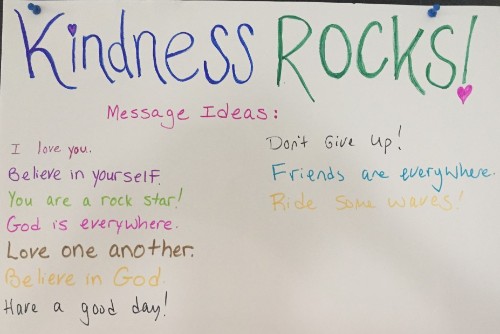 Kindness ROCKS!
Message Ideas:
I love you.
Believe in yourself.
You are a rock star!
God is everywhere.
Love one another.
Believe in God.
Have a good day!
Don't Give Up!
Friends are everywhere.
Ride some waves!